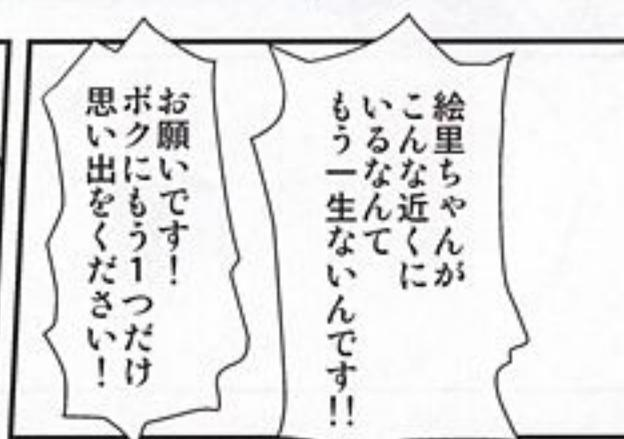 絵里ちゃんが
こんな近くに
いるなんて
もう一生ないんです!!
お願いです!
ボクにもう1つだけ
思い出をください!